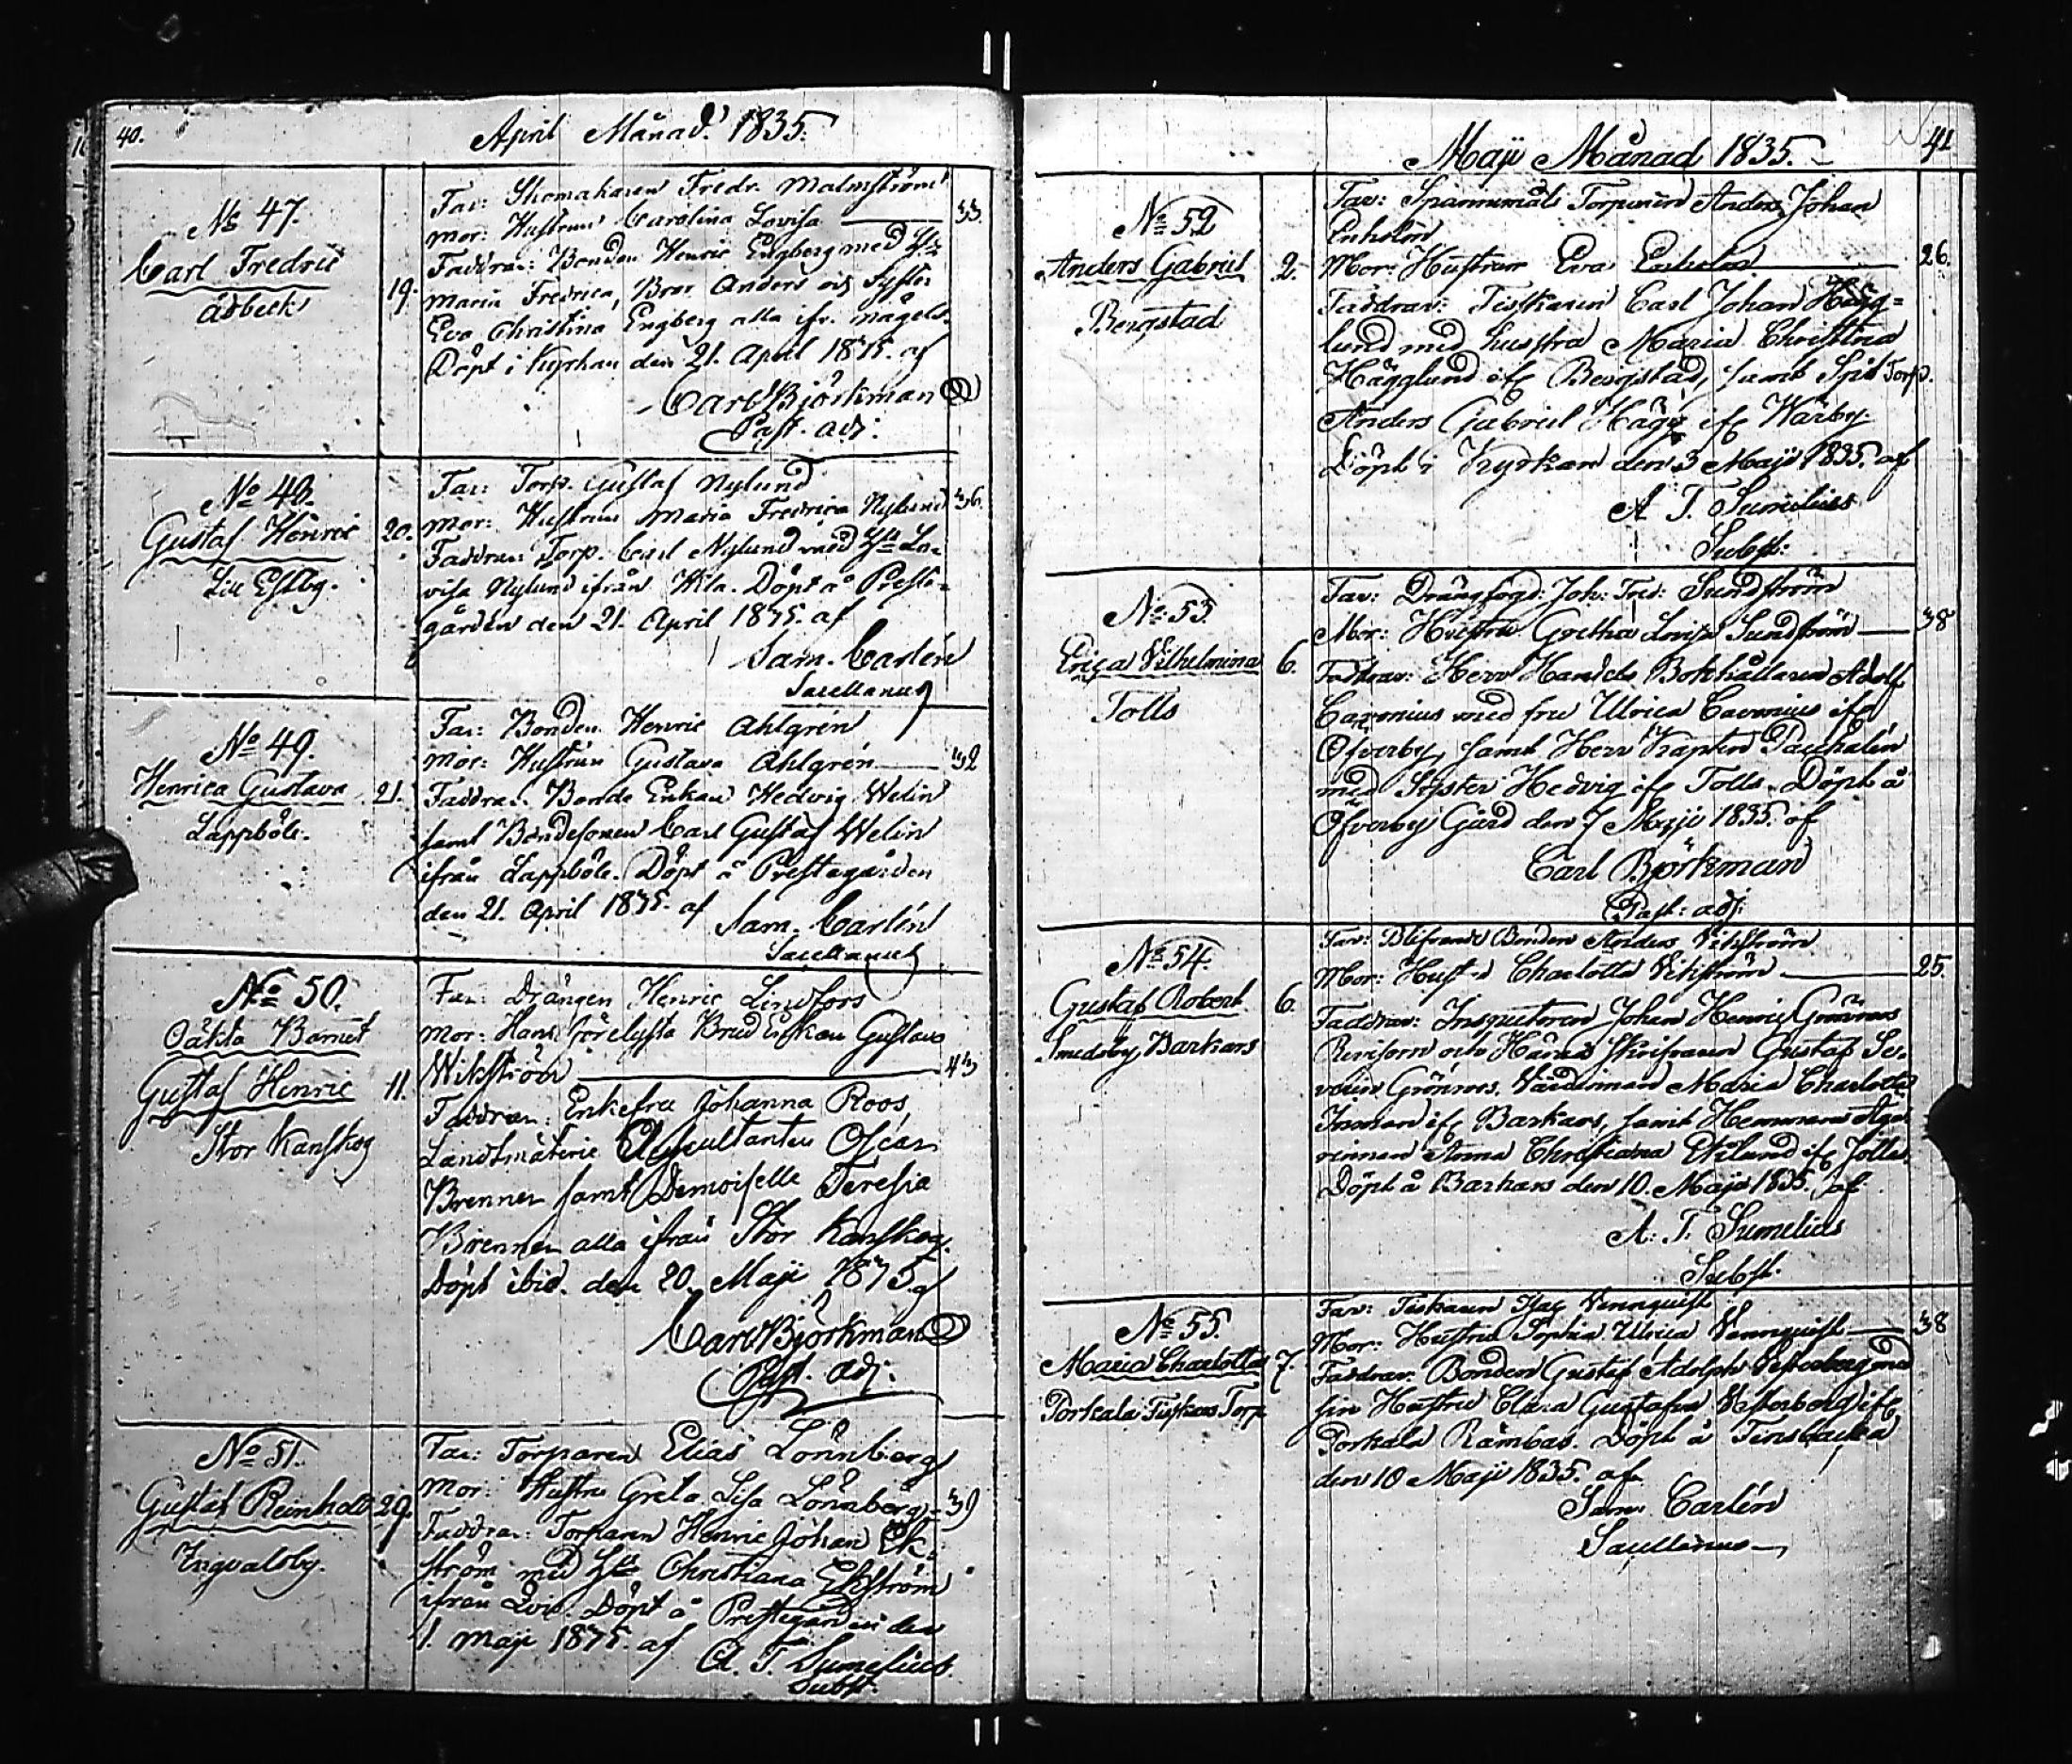 40.
April Månad. 1835.
No 47.
Carl Fredric
Åsbeck
19.
Far: Skomakaren Fredr. Malmström
Mor: Hustrun Carolina Lovisa
33.
Faddrar: Bonden Henric Engberg med H:u
Maria Fredrica, Bror Anders och Syster
Eva Christina Engberg alla ifr.
Döpt i Kyrkan den 21. April 1835. af
Carl Björkman
Past. adj.
No 48.
Gustaf Henric
Lill Esbg.
20.
Far: Torp. Gustaf Nylund
Mor: Hustrun Maria Fredrica Nylund
36.
Faddrar: Torp. Carl Nylund med H:u Lo-
visa Nylund ifrån Kila. Döpt å Preste-
gården den 21. April 1835. af
Sam. Carlén
Sacellanus
No 49.
Henrica Gustava
Lappböle.
21.
Far: Bonden Henric Ahlgrén
Mor: Hustrun Gustava Ahlgrén
32
Faddrar: Bonde Enkan Hedvig Welin
samt Bondesonen Carl Gustaf Welin
ifrån Lappböle. Döpt å Prestegården
den 21. April 1835. af
Sam. Carlén
Sacellanus
No 50.
Oäkta Barnet
Gustaf Henric
Stor Kanskog
11.
Far: Drängen Henric Lindfors
Mor: Hans förelysta Brud Enkan Gustava
Wikström
43
Faddrar: Enkefru Johanna Roos
Landtmäterie Auscultanten Oscar
Brenner samt Demoiselle Teresia
Brenner alla ifrån Stor Kanskog.
Döpt ibid. den 20. Maji 1835 af
Carl Björkman
Past. adj.
No 51.
Gustaf Reinhold
Ingvalsby.
29.
Far: Torparen Elias Lönnberg
Mor: Hustru Greta Lisa Lönnberg
39
Faddrar: Torparen Henric Johan Ek-
ström med H:u Christiana Ekström
ifrån Qvis. Döpt å Prestegården den
1. Maji 1835. af
A. T. Sumelius
Subst.
Maji Månad 1835.
41
No 52
Anders Gabriel
Bergstad
2.
Far: Spannmåls Torparen Anders Johan
Enholm
Mor: Hustrun Eva Enholm
26.
Faddrar: Fiskaren Carl Johan Hägg-
lund med hustru Maria Christina
Hägglund ifr Bergstad, samt Spm Torp.
Anders Gabriel Hägg ifr Wärby.
Döpt i Kyrkan den 3 Maji 1835. af
A T. Sumelius
Subst:
No 53.
Erica Vilhelmina
Tolls
6.
Far: Drängfogd: Joh: Fred: Sundström
Mor: Hustru Gretha Lovisa Sundström
38
Faddrar: Herr Handels Bokhållaren Adolf
Cavonius med fru Ulrica Cavonius ifr
Öfverby, samt Herr Kapten Tauchalin
med Syster Hedvig ifr Tolls. Döpt å
Öfverby Gård den 7 Maji 1835. af
Carl Björkman
Past: adj.
No 54.
Gustaf Robert
Smedsby Barkars
6.
Far: Blifvande Bonden Anders Vikström
Mor: Hustru Charlotta Vikström
25.
Faddrar: Inspectoren Johan Henric Grönroos
Revisorn och Härads Skrifvaren Gustaf Se-
verin Grönroos, Värdinnan Maria Charlotta
Inman ifr Barkars, samt Hemmans Äga-
rinnan Anna Christiana Eklund ifr Jolls.
Döpt å Barkars den 10. Maji 1835. af
A. T. Sumelius
Subst.
No 55.
Maria Charlotta
Porkala Fiskars Torp
7.
Far: Fiskaren Isac Vennquist
Mor: Hustru Sophia Ulrica Vennquist
38
Faddrar: Bonden Gustaf Adolph Vesterberg med
sin Hustru Clara Gustafva Vesterberg ifr
Porkala Rämbas. Döpt å Finsbacka
den 10 Maji 1835. af
Sam: Carlén
Sacellanus